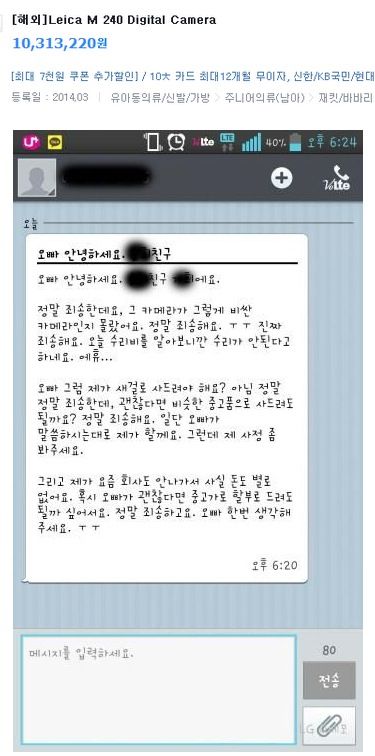 [해외]Leica M 240 Digital Camera
10,313,220원
[최대 7천원 쿠폰 추가할인] / 10大 카드 최대12개월 무이자, 신한/KB국민/현대
등록일 : 2014.03 | 유아동의류/신발/가방 > 주니어의류(남아) > 재킷/바바리
U+ VoLTE LTE 40% 오후 6:24
VoLTE
오늘
오빠 안녕하세요. 친구
오빠 안녕하세요. 친구 에요.
정말 죄송한데요, 그 카메라가 그렇게 비싼
카메라인지 몰랐어요. 정말 죄송해요. ㅜㅜ 진짜
죄송해요. 오늘 수리비를 알아보니깐 수리가 안된다고
하네요. 에휴...
오빠 그럼 제가 새걸로 사드려야 해요? 아님 정말
정말 죄송한데, 괜찮다면 비슷한 중고품으로 사드려도
될까요? 정말 죄송해요. 일단 오빠가
말씀하시는대로 제가 할께요. 그런데 제 사정 좀
봐주세요.
그리고 제가 요즘 회사도 안나가서 사실 돈도 별로
없어요. 혹시 오빠가 괜찮다면 중고가로 할부로 드려도
될까 싶어서요. 정말 죄송하고요. 오빠 한번 생각해
주세요. ㅜㅜ
오후 6:20
메시지를 입력하세요.
80
전송